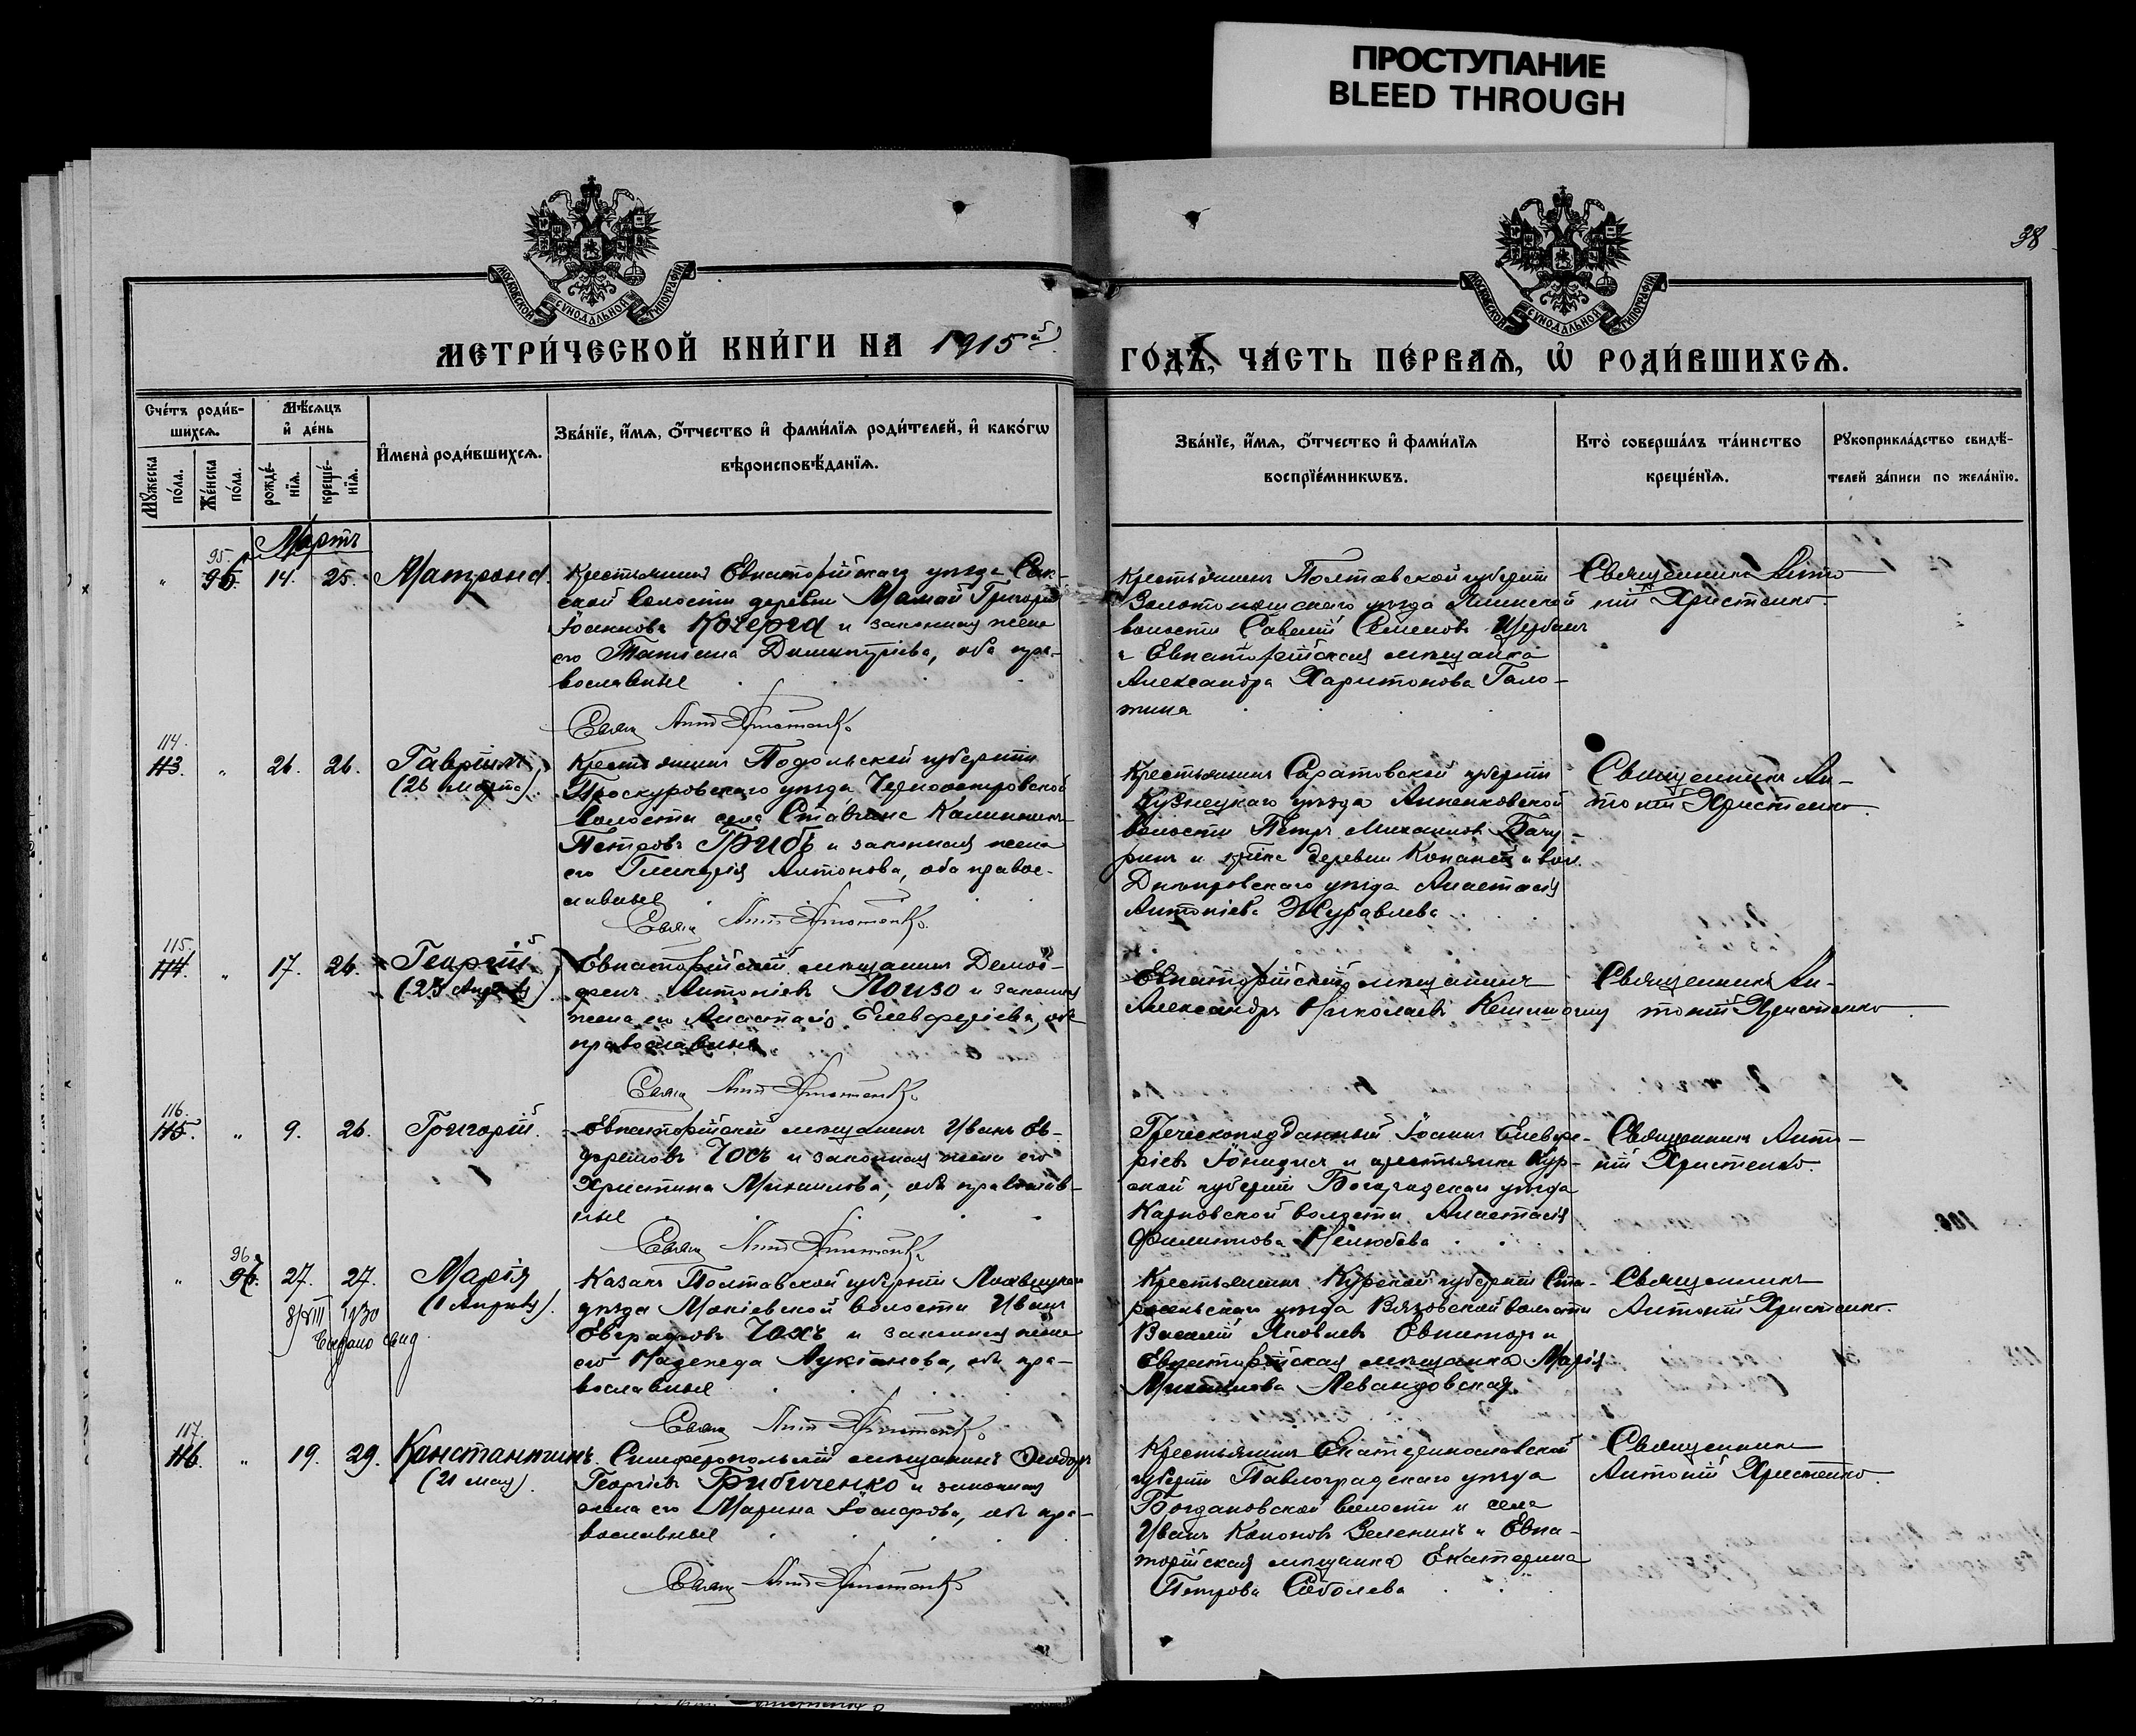 ПРОСТУПАНИЕ
BLEED THROUGH
38
МОСКОВСКОЙ СУНОДАЛЬНОЙ ТИПОГРАФІИ
МОСКОВСКОЙ СУНОДАЛЬНОЙ ТИПОГРАФІИ
МЕТРИ́ЧЕСКОЙ КНИ́ГИ НА 1915й ГО́ДЪ, ЧА́СТЬ ПЕ́РВАЯ, Ѡ РОДИ́ВШИХСЯ.
Сче́тъ роди́в-
шихся.
Мѣ́сяцъ
и де́нь
Мꙋ́жеска по́ла.
Же́нска по́ла.
рожде́нїя.
креще́нїя.
Имена̀ роди́вшихся.
Зва́нїе, и́мя, о́тчество и фами́лїя роди́телей, и како́гѡ
вѣроисповѣ́данїя.
Зва́нїе, и́мя, о́тчество и фами́лїя
воспрїе́мникѡвъ.
Кто̀ соверша́лъ та́инство
креще́нїя.
Рꙋкоприкла́дство свидѣ́-
телей за́писи по жела́нїю.
Мартъ
95.
96. 14. 25. Матрона
Крестьянинъ Евпаторійскаго уѣзда Сак-
ской волости деревни Мамай Григорій
Іоанновъ Кочерга и законная жена
его Татіана Димитріева, оба пра-
вославные
Свящ. Антоній Христенко
Крестьянинъ Полтавской губерніи
Золотоношскаго уѣзда
волости Савелій Семеновъ Щербакъ
и Евпаторійская мѣщанка
Александра Харитонова Гало-
Священникъ Анто-
ній Христенко.
114.
113. " 26. 26. Гавріилъ
(26 марта).
Крестьянинъ Подольской губерніи
Проскуровскаго уѣзда Черноостровской
волости села Ставчинс Каллиникъ
Петровъ Грибъ и законная жена
его Гликерія Антонова, оба правос-
лавные
Свящ. Антоній Христенко
Крестьянинъ Саратовской губерніи
Кузнецкаго уѣзда Анненковской
волости Петръ Михаиловъ Бачу-
ринъ и деревни
Днѣпровскаго уѣзда Анастасія
Антоніева Журавлева
Священникъ Ан-
тоній Христенко
115.
114. " 17. 26. Георгій
(23 Апрѣля)
Евпаторійскій мѣщанинъ Демос-
фенъ Антоніевъ и законная
жена его Анастасія Елевферіева, оба
православные
Свящ. Антоній Христенко
Евпаторійскій мѣщанинъ
Александръ Николаевъ
Священникъ Ан-
тоній Христенко
116.
115. " 9. 26. Григорій.
Евпаторійскій мѣщанинъ Иванъ Ев-
Чосъ и законная жена его
Христина Михаилова, оба православ-
ные
Свящ. Антоній Христенко
Греческоподданный Іоаннъ Елевфе-
ріевъ и крестьянка Кур-
ской губерніи уѣзда
Карповской волости Анастасія
Филиппова Нелюбова
Священникъ Анто-
ній Христенко.
96.
" 97. 27. 27. Марія
(1 Апрѣля).
8/VIII 1930
Выдано свид.
Казакъ Полтавской губерніи
уѣзда волости Иванъ
Евграфовъ Чохъ и законная жена
его Надежда Лукіанова, оба пра-
вославные
Свящ. Антоній Христенко
Крестьянинъ Курской губерніи Ста-
рооскольскаго уѣзда Вязовской волости
Василій Яковлевъ и
Евпаторійская мѣщанка Марія
Левандовская
Священникъ
Антоній Христенко.
117.
116. " 19. 29. Константинъ.
(21 мая).
Симферопольскій мѣщанинъ Ѳеодоръ
Георгіевъ Грибиченко и законная
жена его Марина Іосифова, оба пра-
вославные
Свящ. Антоній Христенко
Крестьянинъ Екатеринославской
губерніи Павлоградскаго уѣзда
Богдановской волости и села
Иванъ Кононовъ Зеленинъ и Евпа-
торійская мѣщанка Екатерина
Петрова Соболева
Священникъ
Антоній Христенко.